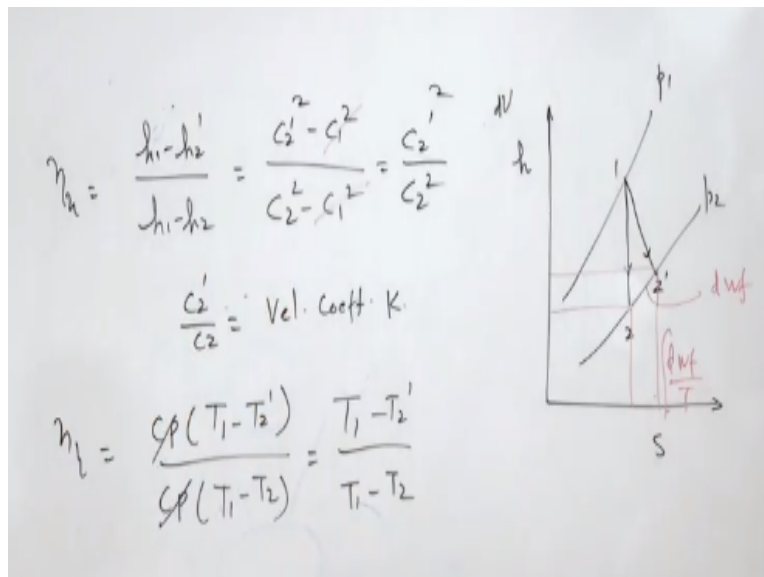 ηn = h1-h2' / h1-h2 = c2'^2 - c1^2 / c2^2 - c1^2 = c2'^2 / c2^2
c2' / c2 = Vel. Coeff. K
ηt = cp(T1-T2') / cp(T1-T2) = T1-T2' / T1-T2
p1
h
1
p2
2'
dwf
2
dwf / T
S